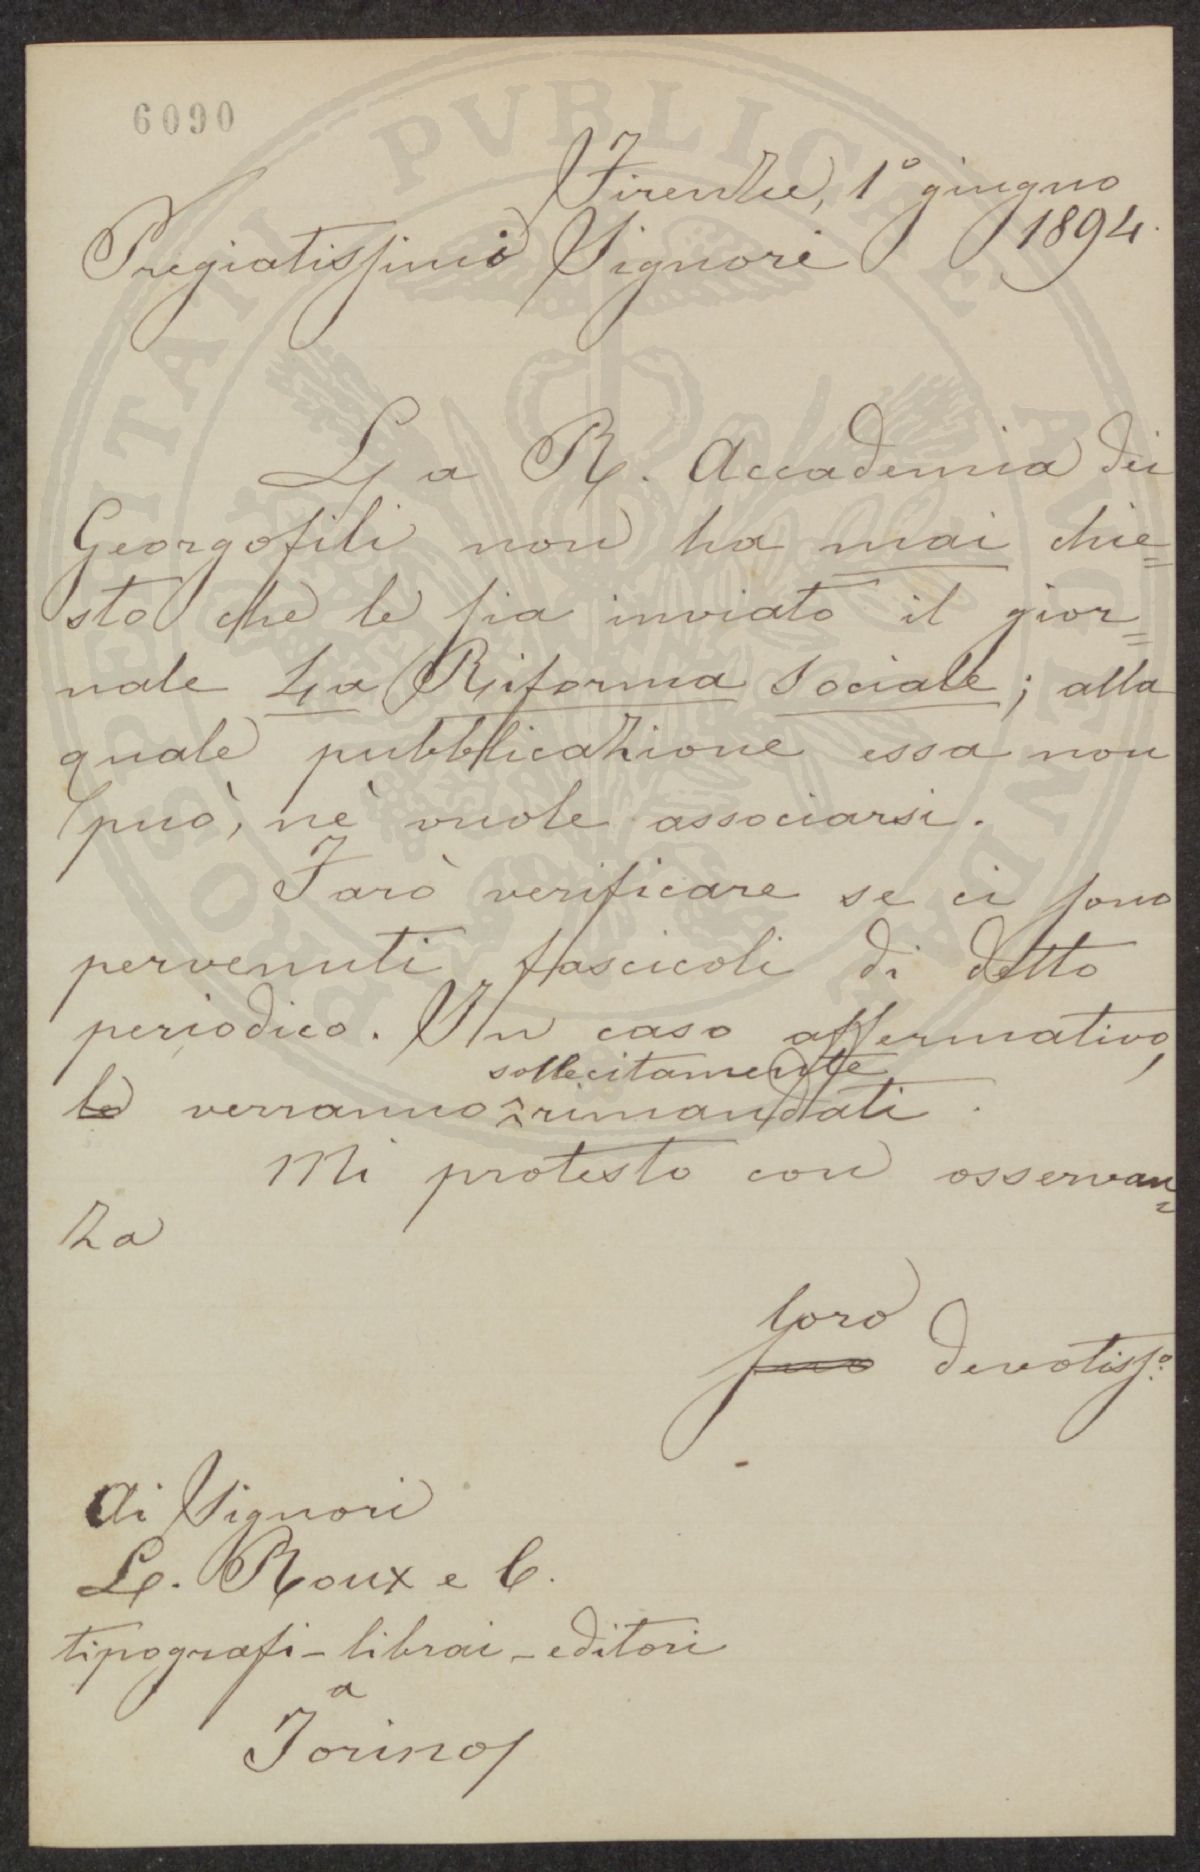 6090
Firenze, 1° giugno
1894.
Pregiatissimi Signori
La R. Accademia dei
Georgofili non ha mai chie=
sto che le sia inviato il gior=
nale La Riforma Sociale; alla
quale pubblicazione essa non
può, nè vuole associarsi.
Farò verificare se ci sono
pervenuti fascicoli di detto
periodico. In caso affermativo,
sollecitamente
le verranno rimandati.
Mi protesto con osservan=
za
loro
suo devotiss.°
Ai Signori
L. Roux e C.
tipografi-librai-editori
a
Torino
PROSPERITATI PVBLICAE AVGENDAE